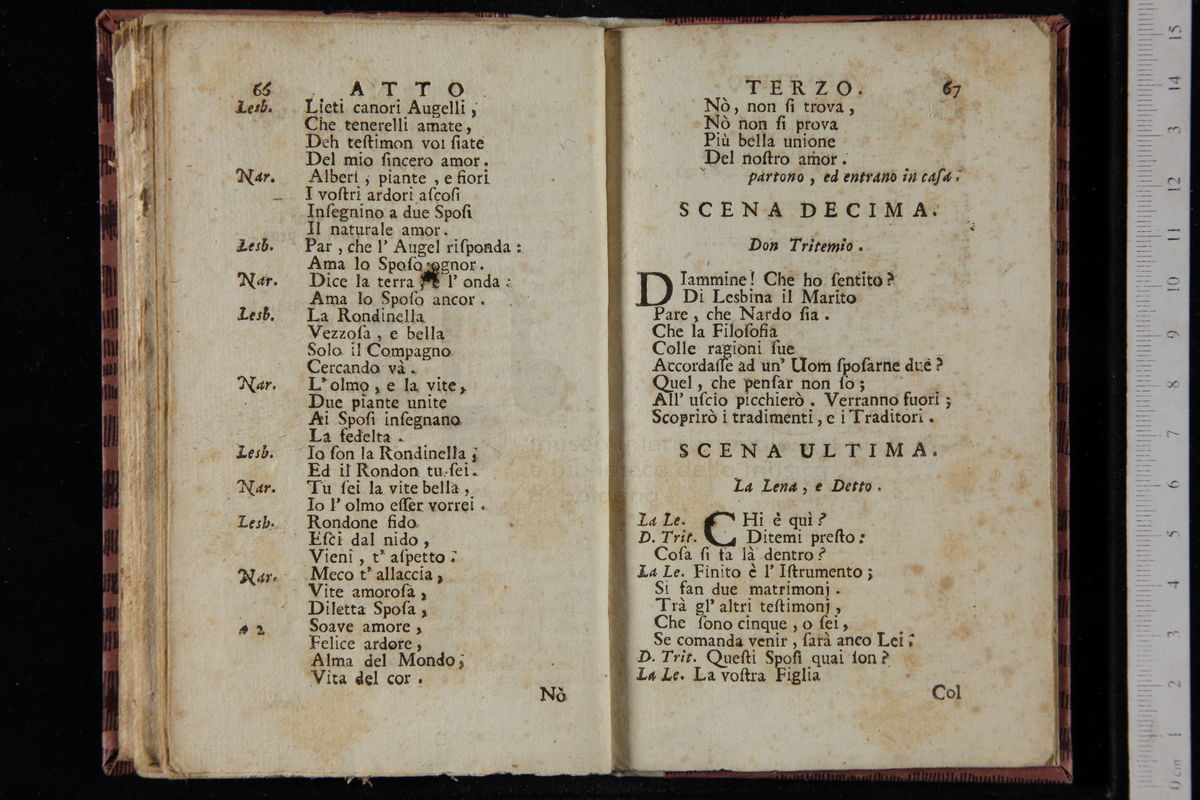 66 ATTO
Lesb. Lieti canori Augelli,
Che tenerelli amate,
Deh teſtimon voi ſiate
Del mio ſincero amor.
Nar. Alberi, piante, e fiori
I voſtri ardori aſcoſi
Inſegnino a due Spoſi
Il naturale amor.
Lesb. Par, che l' Augel riſponda:
Ama lo Spoſo ognor.
Nar. Dice la terra, e l' onda:
Ama lo Spoſo ancor.
Lesb. La Rondinella
Vezzoſa, e bella
Solo il Compagno
Cercando và.
Nar. L' olmo, e la vite,
Due piante unite
Ai Spoſi inſegnano
La fedelta.
Lesb. Io ſon la Rondinella;
Ed il Rondon tu ſei.
Nar. Tu ſei la vite bella,
Io l' olmo eſſer vorrei.
Lesb. Rondone fido
Eſci dal nido,
Vieni, t' aſpetto:
Nar. Meco t' allaccia,
Vite amoroſa,
Diletta Spoſa,
a 2 Soave amore,
Felice ardore,
Alma del Mondo;
Vita del cor.
Nò
TERZO. 67
Nò, non ſi trova,
Nò non ſi prova
Più bella unione
Del noſtro amor.
partono, ed entrano in caſa.
SCENA DECIMA.
Don Tritemio.
DIammine! Che ho ſentito?
Di Lesbina il Marito
Pare, che Nardo ſia.
Che la Filoſofia
Colle ragioni ſue
Accordaſſe ad un' Uom ſpoſarne due?
Quel, che penſar non ſo;
All' uſcio picchierò. Verranno fuori;
Scoprirò i tradimenti, e i Traditori.
SCENA ULTIMA.
La Lena, e Detto.
La Le. CHi è quì?
D. Trit. Ditemi preſto:
Coſa ſi fa là dentro?
La Le. Finito è l' Iſtrumento;
Si fan due matrimonj.
Trà gl' altri teſtimonj,
Che ſono cinque, o ſei,
Se comanda venir, ſarà anco Lei.
D. Trit. Queſti Spoſi quai ſon?
La Le. La voſtra Figlia
Col